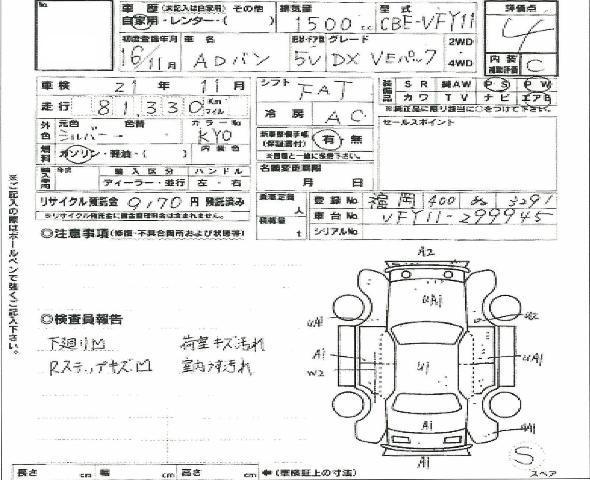 No.
車歴 (未記入は自家用) その他
自家用・レンタ・( )
排気量
1500 cc
型式
CBE-VFY11
評価点
4
初度登録年月
16/11月
車名
ADバン
型状・ドア数
5V
グレード
DX VEパック
2WD
4WD
内装
補助評価
C
車検 21年 11月
シフト
FAT
装備品
SR 純AW PS PW
カワ TV ナビ エアB
※純正品に限り該当に○をつけて下さい。
走行 81,330 Km マイル
冷房
AC
セールスポイント
外色
元色
シルバー
色替
カラーNo
KYO
新車整備手帳
(保証書付)
有・無
※書類と一緒に保管下さい。
燃料
ガソリン・軽油・( )
内装色
輸入車
年式
輸入区分
ハンドル
ディーラー・並行
左・右
名義変更期限
月 日
リサイクル預託金 9,170円 預託済み
※リサイクル預託金に資金管理料金は含まれません。
乗車定員
人
積載量
t
登録No. 福岡 400 す 3291
車台No. VFY11-299945
シリアルNo.
◎注意事項 (修復・不具合箇所および状態等)
◎検査員報告
下廻りM
荷室キズ汚れ
RステップキズM
室内汚れ
※ご記入の際はボールペンで強くご記入下さい。
A2
UA1
UA1
U2
A1
W2
U1
UA1
A1
UA1
A1
S
スペア
長さ cm 幅 cm 高さ cm ←(車検証上の寸法)